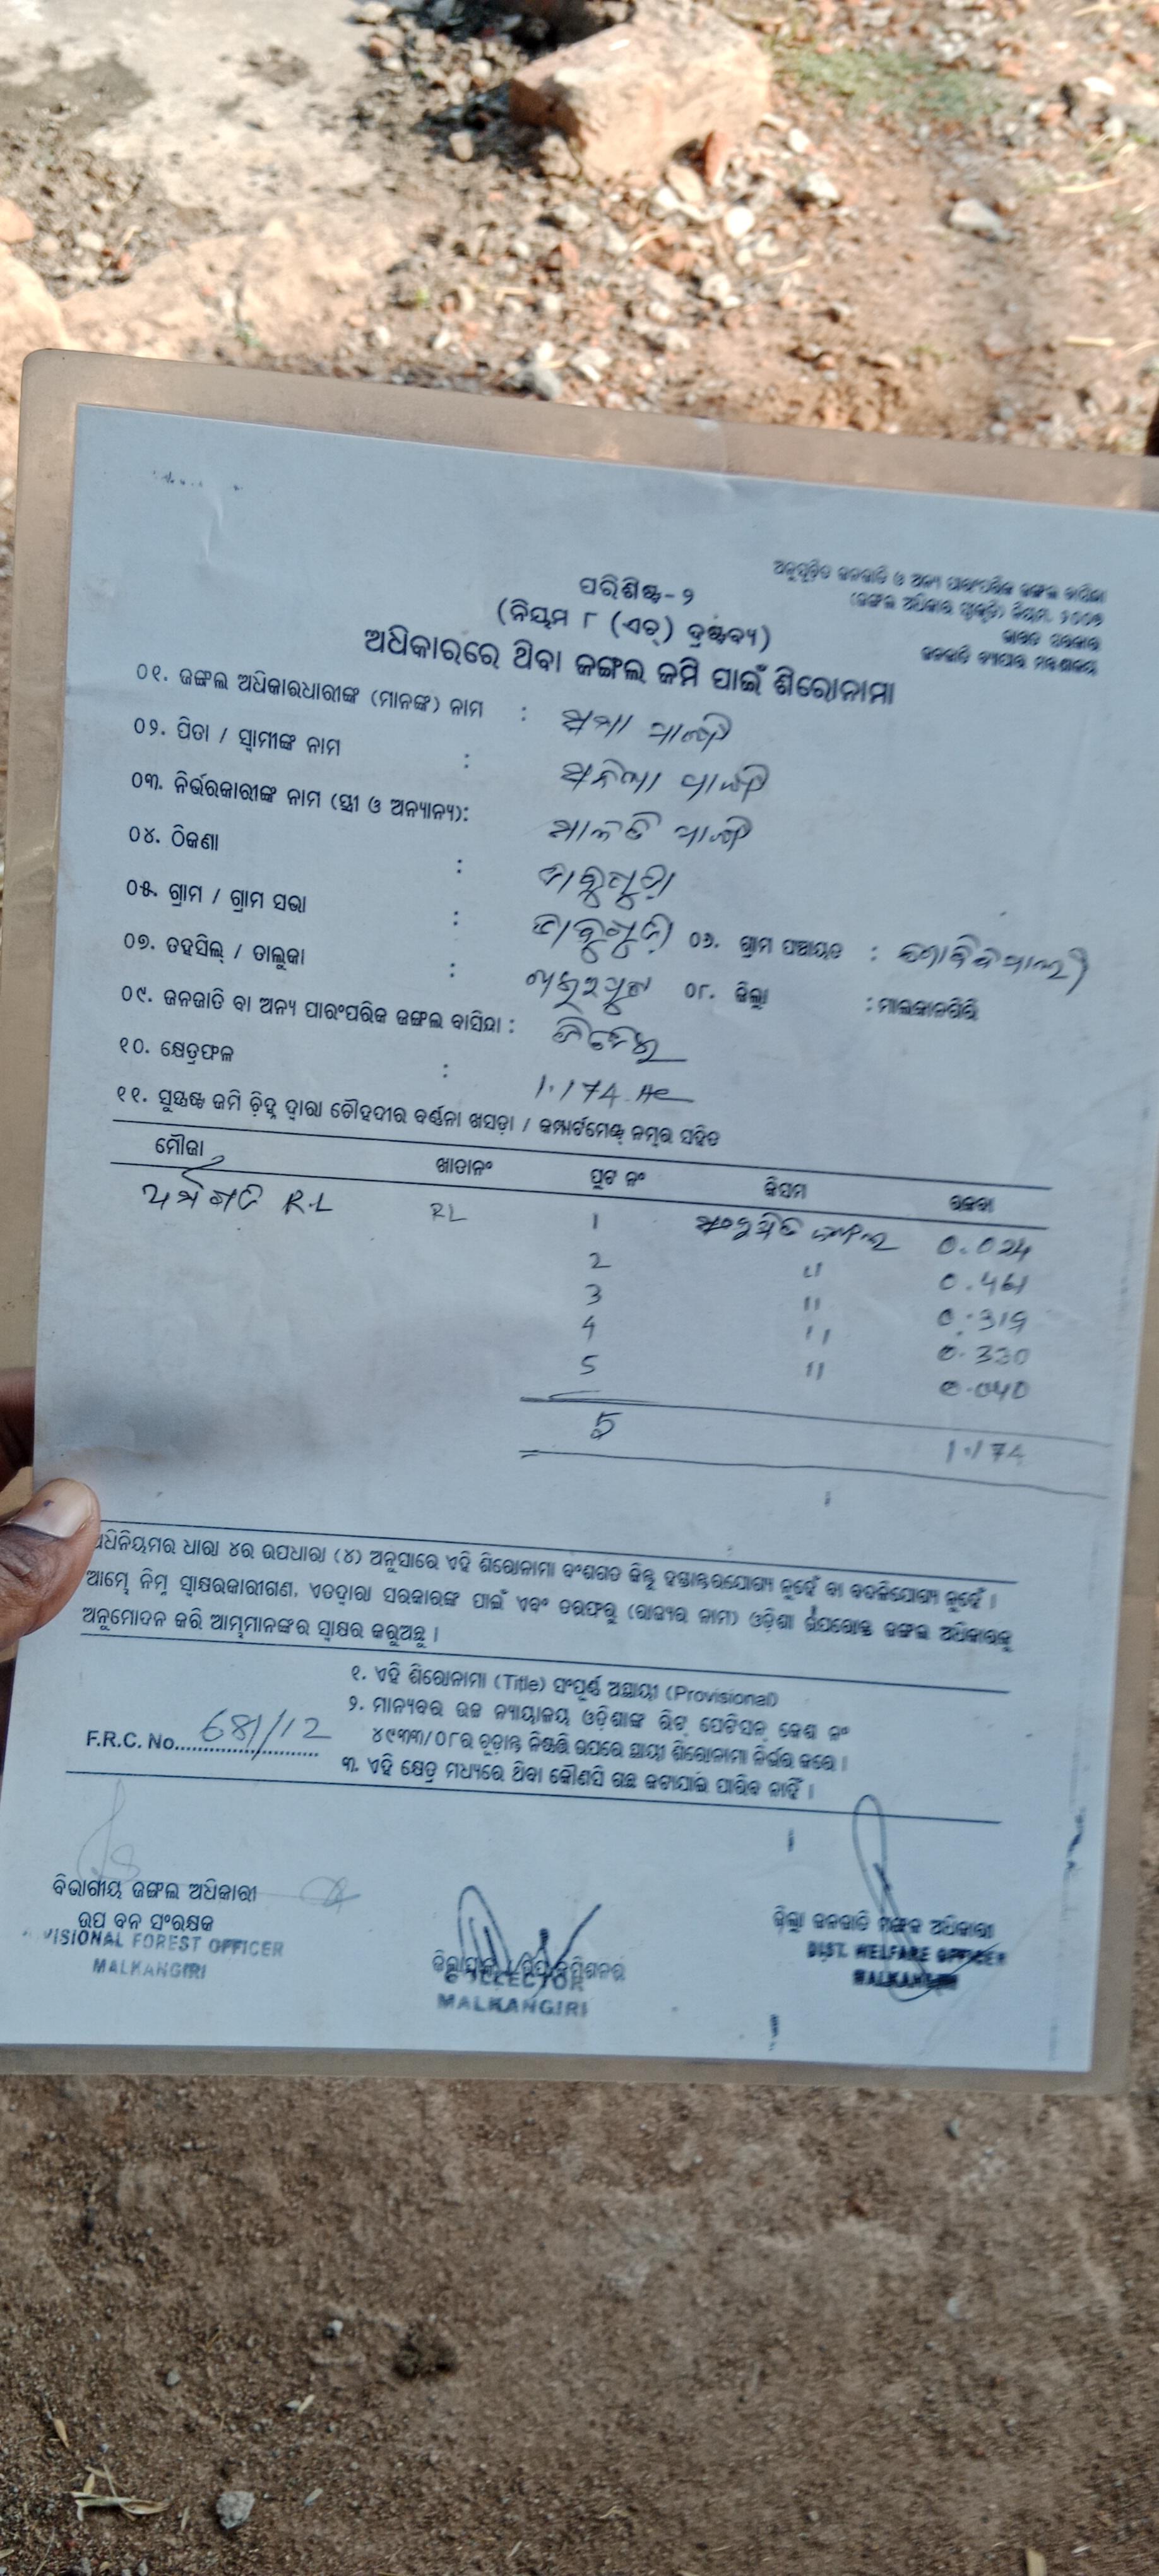 ଅନୁସୂଚିତ ଜନଜାତି ଓ ଅନ୍ୟ ପାରଂପରିକ ଜଙ୍ଗଲ ବାସିନ୍ଦା
(ଜଙ୍ଗଲ ଅଧିକାର ସ୍ୱୀକୃତି) ନିୟମ, ୨୦୦୭
ଭାରତ ସରକାର
ଜନଜାତି ବ୍ୟାପାର ମନ୍ତ୍ରଣାଳୟ
ପରିଶିଷ୍ଟ-୨
(ନିୟମ ୮ (ଏଚ୍) ଦ୍ରଷ୍ଟବ୍ୟ)
ଅଧିକାରରେ ଥିବା ଜଙ୍ଗଲ ଜମି ପାଇଁ ଶିରୋନାମା
୦୧. ଜଙ୍ଗଲ ଅଧିକାରଧାରୀଙ୍କ (ମାନଙ୍କ) ନାମ :
୦୨. ପିତା / ସ୍ୱାମୀଙ୍କ ନାମ :
୦୩. ନିର୍ଭରକାରୀଙ୍କ ନାମ (ସ୍ତ୍ରୀ ଓ ଅନ୍ୟାନ୍ୟ):
୦୪. ଠିକଣା :
୦୫. ଗ୍ରାମ / ଗ୍ରାମ ସଭା : ୦୬. ଗ୍ରାମ ପଞ୍ଚାୟତ :
୦୭. ତହସିଲ୍ / ତାଲୁକା : ୦୮. ଜିଲ୍ଲା : ମାଲକାନଗିରି
୦୯. ଜନଜାତି ବା ଅନ୍ୟ ପାରଂପରିକ ଜଙ୍ଗଲ ବାସିନ୍ଦା :
୧୦. କ୍ଷେତ୍ରଫଳ : 1.174 Ac
୧୧. ସୁସ୍ପଷ୍ଟ ଜମି ଚିହ୍ନ ଦ୍ୱାରା ଚୌହଦୀର ବର୍ଣ୍ଣନା ଖସଡ଼ା / କମ୍ପାର୍ଟମେଣ୍ଟ ନମ୍ବର ସହିତ
ମୌଜା ଖାତାନଂ ପ୍ଲଟ ନଂ କିସମ ରକବା
R.L RL 1 0.024
2 " 0.461
3 " 0.319
4 " 0.330
5 " 0.040
5 1.174
ଅଧିନିୟମର ଧାରା ୪ର ଉପଧାରା (୪) ଅନୁସାରେ ଏହି ଶିରୋନାମା ବଂଶଗତ କିନ୍ତୁ ହସ୍ତାନ୍ତରଯୋଗ୍ୟ ନୁହେଁ ବା ବଦଳିଯୋଗ୍ୟ ନୁହେଁ ।
ଆମ୍ଭେ ନିମ୍ନ ସ୍ୱାକ୍ଷରକାରୀଗଣ, ଏତଦ୍ୱାରା ସରକାରଙ୍କ ପାଇଁ ଏବଂ ତରଫରୁ (ରାଜ୍ୟର ନାମ) ଓଡ଼ିଶା ଉପରୋକ୍ତ ଜଙ୍ଗଲ ଅଧିକାରକୁ
ଅନୁମୋଦନ କରି ଆମ୍ଭମାନଙ୍କର ସ୍ୱାକ୍ଷର କରୁଅଛୁ ।
୧. ଏହି ଶିରୋନାମା (Title) ସଂପୂର୍ଣ୍ଣ ଅସ୍ଥାୟୀ (Provisional)
୨. ମାନ୍ୟବର ଉଚ୍ଚ ନ୍ୟାୟାଳୟ ଓଡ଼ିଶାଙ୍କ ରିଟ୍ ପେଟିସନ୍ କେଶ ନଂ
୪୯୩୩/୦୮ର ଚୂଡ଼ାନ୍ତ ନିଷ୍ପତ୍ତି ଉପରେ ସ୍ଥାୟୀ ଶିରୋନାମା ନିର୍ଭର କରେ ।
F.R.C. No. 681/12
୩. ଏହି କ୍ଷେତ୍ର ମଧ୍ୟରେ ଥିବା କୌଣସି ଗଛ କଟାଯାଇ ପାରିବ ନାହିଁ ।
ବିଭାଗୀୟ ଜଙ୍ଗଲ ଅଧିକାରୀ
ଉପ ବନ ସଂରକ୍ଷକ
VISIONAL FOREST OFFICER
MALKANGIRI
COLLECTOR
MALKANGIRI
ଜିଲ୍ଲା ଜନଜାତି ମଙ୍ଗଳ ଅଧିକାରୀ
DIST. WELFARE OFFICER
MALKANGIRI